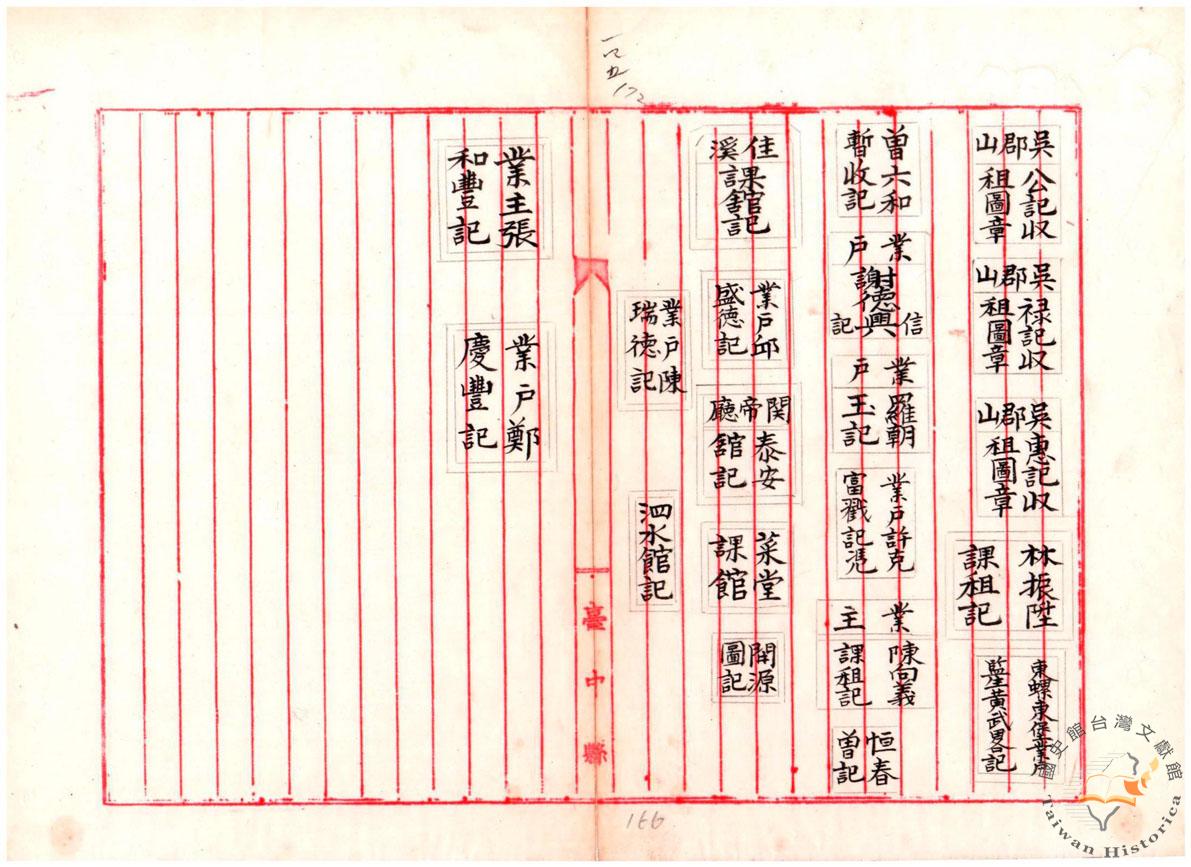 吳郡山
公記収
租圖章
吳郡山
禄記収
租圖章
吳郡山
惠記収
租圖章
林振陞
課租記
東螺東保業戶
監生黃武畧記
曾六和
暫收記
業戶
謝德興
信記
業戶
羅朝
玉記
業戶許克
富戳記憑
業主
陳向義
課租記
恒春
曾記
佳溪
課館記
業戶邱
盛德記
関帝廳
泰安
舘記
菜堂
課館
開源
圖記
業戶陳
瑞德記
泗水館記
172
臺中縣
166
業主張
和豐記
業戶鄭
慶豐記
國史館台灣文獻館
Taiwan Historica